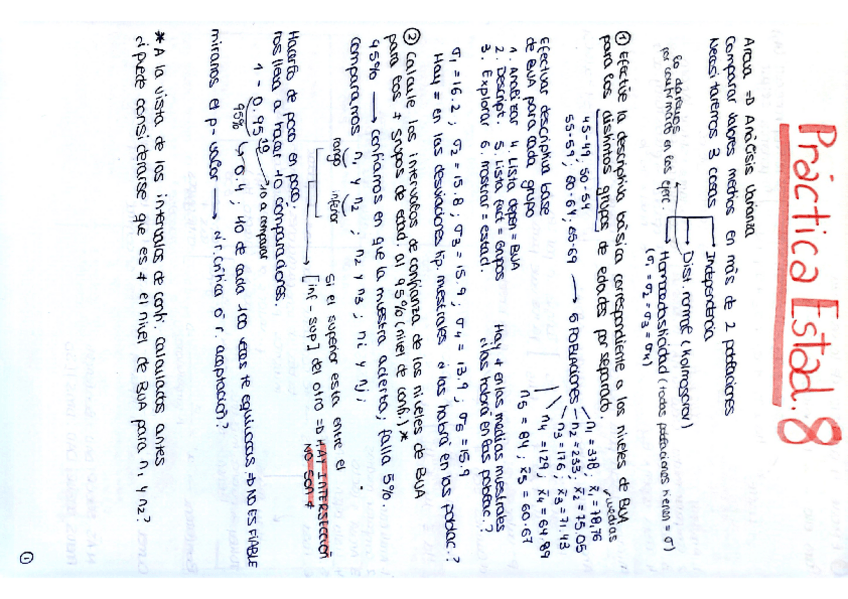 Práctica Estad. 8
Anova => Análisis Varianza
Comparar valores medios en más de 2 poblaciones
Necesitaremos 3 cosas
Independencia
Dist. normal (Kolmogorov)
Homocedasticidad (todas poblaciones tienen = σ)
(σ1 = σ2 = σ3 = σ4)
lo
por confirmado en los ejerc.
① Efectúe la descriptiva básica correspondiente a los niveles de BUA
para los distintos grupos de edades por separado.
45-49, 50-54
55-59; 60-64; 65-69 → 5 poblaciones
medias
n1 = 378, x̄1 = 78,76
n2 = 233; x̄2 = 75.05
n3 = 176; x̄3 = 71.43
n4 = 129; x̄4 = 64.89
n5 = 84; x̄5 = 60.67
Efectuar descriptiva base
de BUA para cada grupo
1. Analizar 4. Lista depen = BUA
2. Descript. 5. Lista fact = Grupos
3. Explorar 6. Mostrar = estad.
Hay ≠ en las medias muestrales
¿las habrá en las poblac.?
σ1 = 16.2; σ2 = 15.8; σ3 = 15.9; σ4 = 13.9; σ5 = 15.9
Hay = en las desviaciones tip. muestrales ¿las habrá en las poblac.?
② Calcule los intervalos de confianza de los niveles de BUA
para los ≠ grupos de edad. al 95% (nivel de confi.) *
95% → confiamos en que la muestra acierta; falla 5%.
comparamos n1 y n2; n2 y n3; ni y nj
rango inferior
Si el superior esta entre el
[inf - sup] del otro => HAY INTERSECCIÓN
NO SON ≠
Hacerlo de poco en poco,
nos lleva a hacer 10 comparaciones.
1 - 0.95^10 → 10 a comparar
95% ↳ 0.4; 40 de cada 100 veces te equivocas => NO ES FIABLE
miramos el p-valor → ¿r. crítica ó r. aceptación?
* A la vista de los intervalos de confi. calculados antes
¿puede considerarse que es ≠ el nivel de BUA para n1 y n2?
①